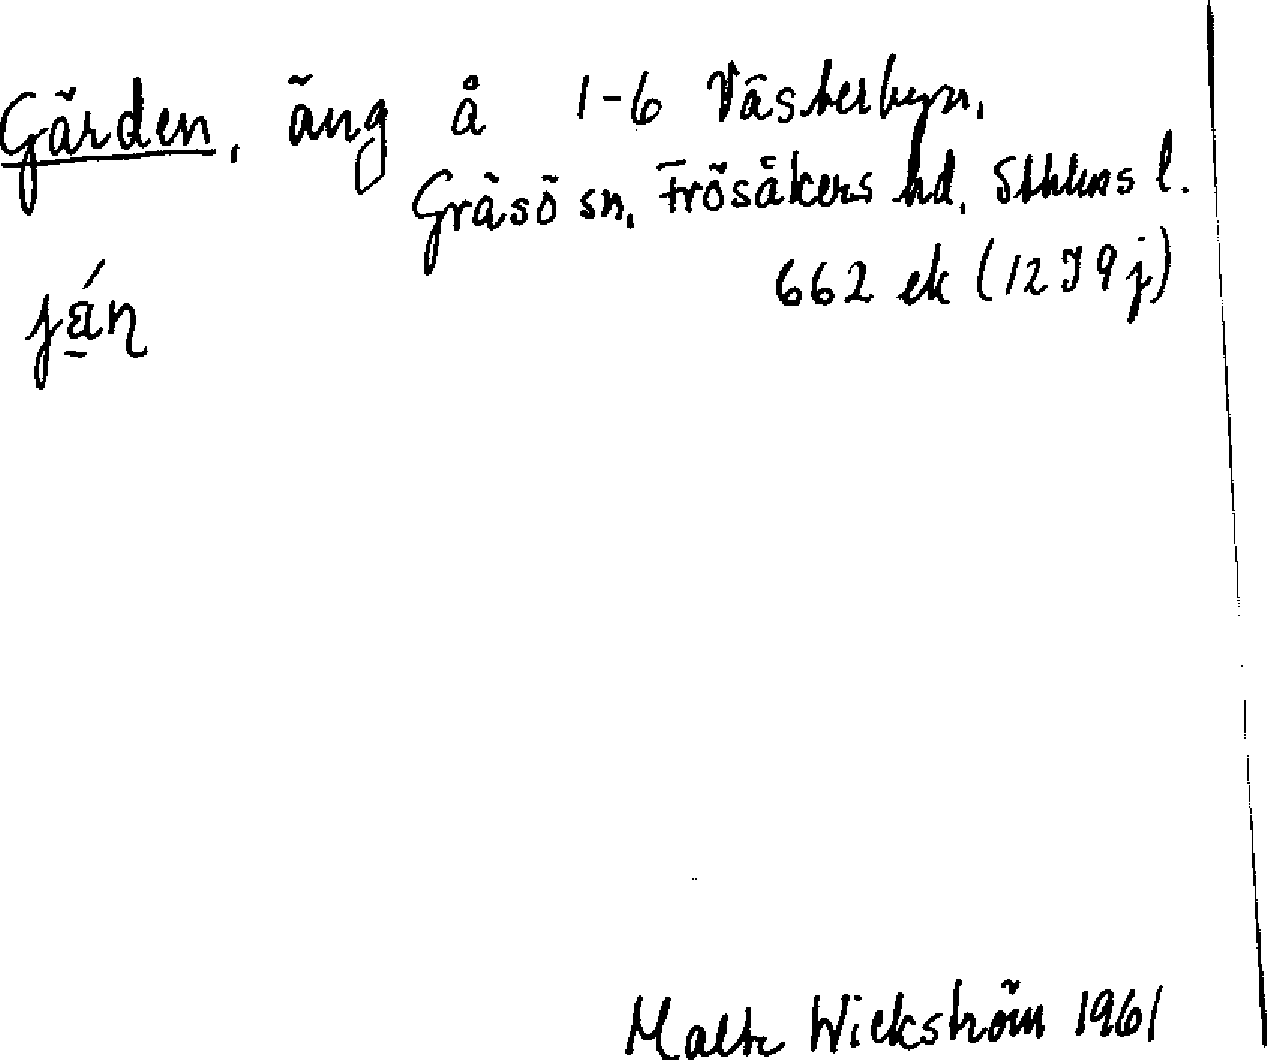 Gärden, äng å 1-6 Västerbyn,
Gräsö sn, Frösåkers hd, Sthlms l.
662 ek (12 I 9 j)
ján
Malte Wickström 1961